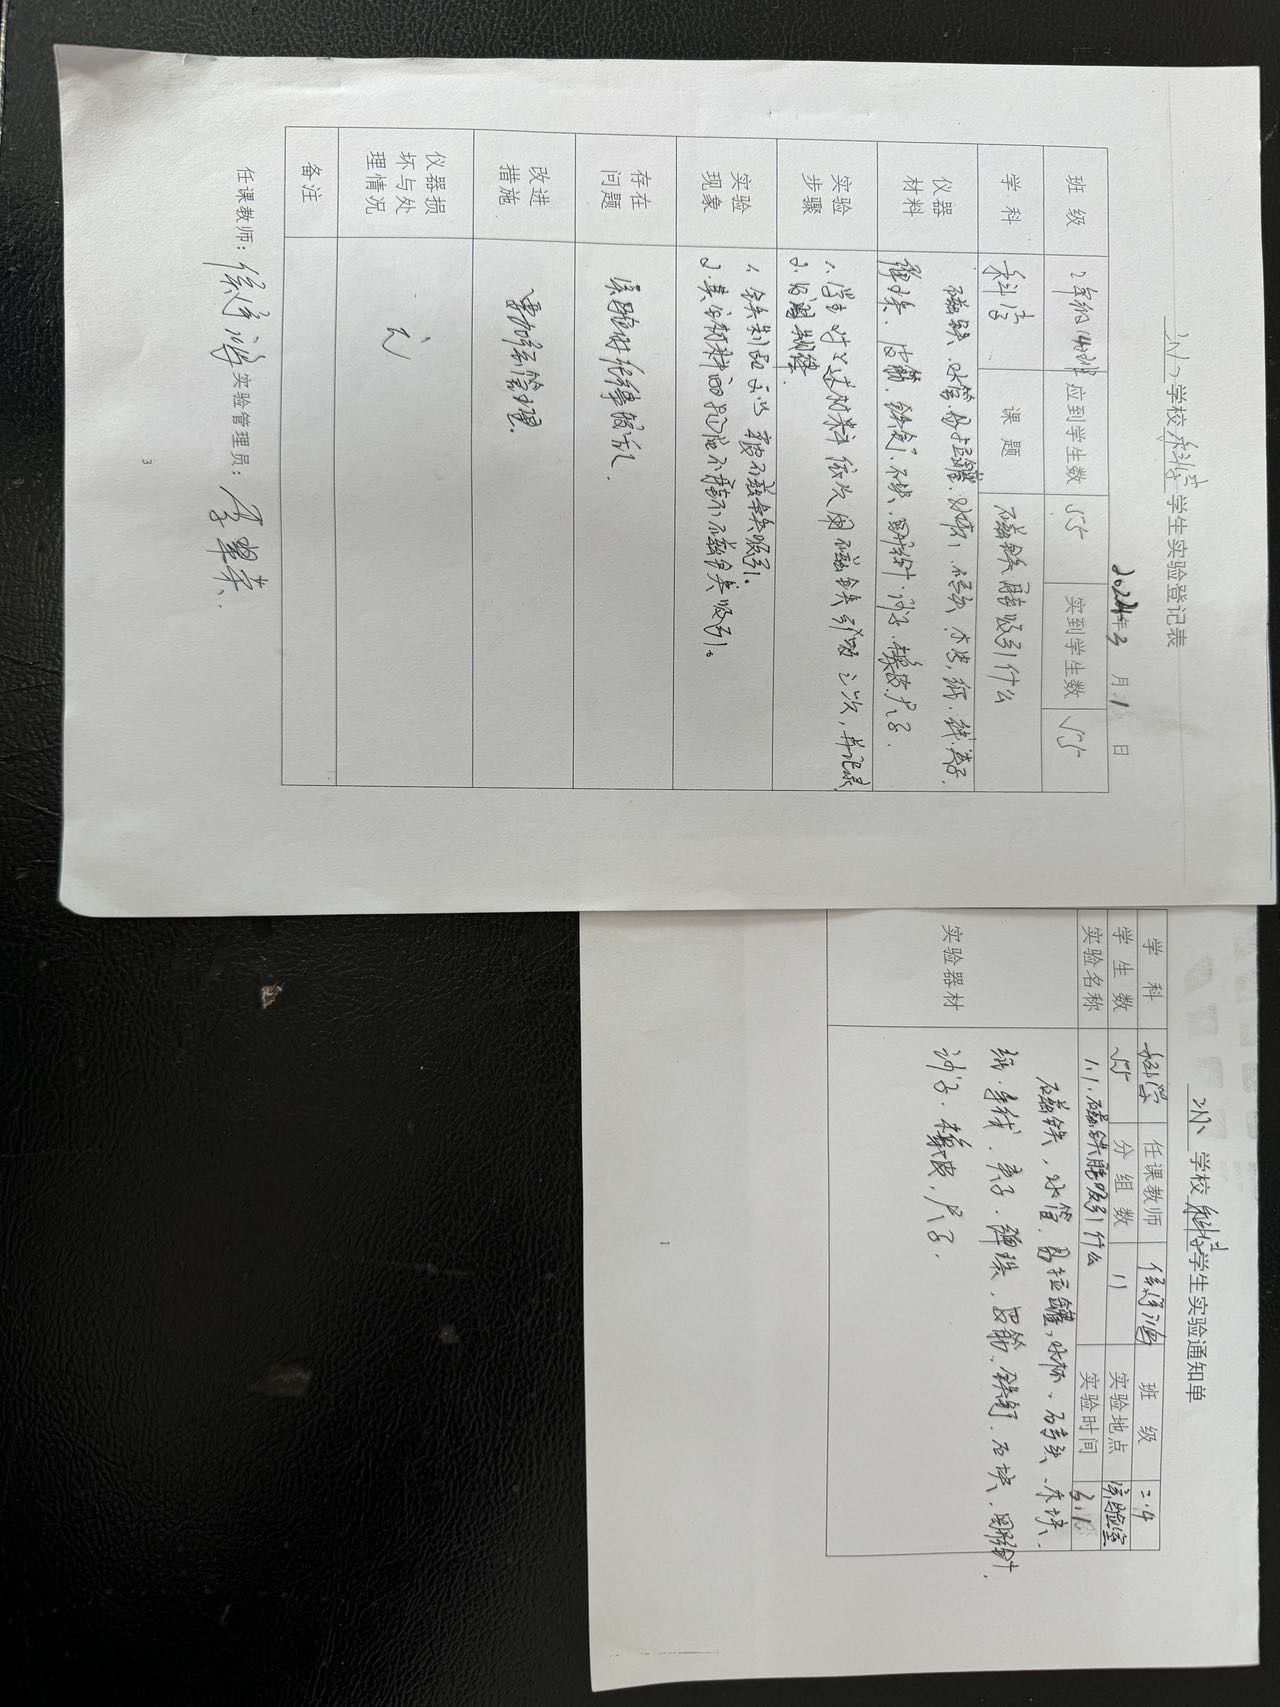 学校科学学生实验登记表
2024年3月1日
班级 2年级(4)班 应到学生数 55 实到学生数 55
学科 科学 课题 磁铁能吸引什么
仪器材料 磁铁、水管、易拉罐、水杯、石头、木块、纸、线、夹子、
弹珠、皮筋、铁钉、石块、回形针、沙子、橡皮、尺子.
实验步骤 1、学生对以上材料依次用磁铁引吸三次,并记录
2.
实验现象 1、铁制品可以被磁铁吸引。
2、其余材料不能被磁铁吸引。
存在问题 实验时纪律较乱.
改进措施 要加强管理.
仪器损坏与处理情况 无
备注
任课教师: 实验管理员:
3
学校科学学生实验通知单
学科 科学 任课教师 班级 二.4
学生数 55 分组数 11 实验地点 实验室
实验名称 1.1.磁铁能吸引什么 实验时间 3.1
实验器材 磁铁、水管、易拉罐、水杯、石头、木块、
纸、毛线、夹子、弹珠、皮筋、铁钉、石块、回形针、
沙子、橡皮、尺子.
1